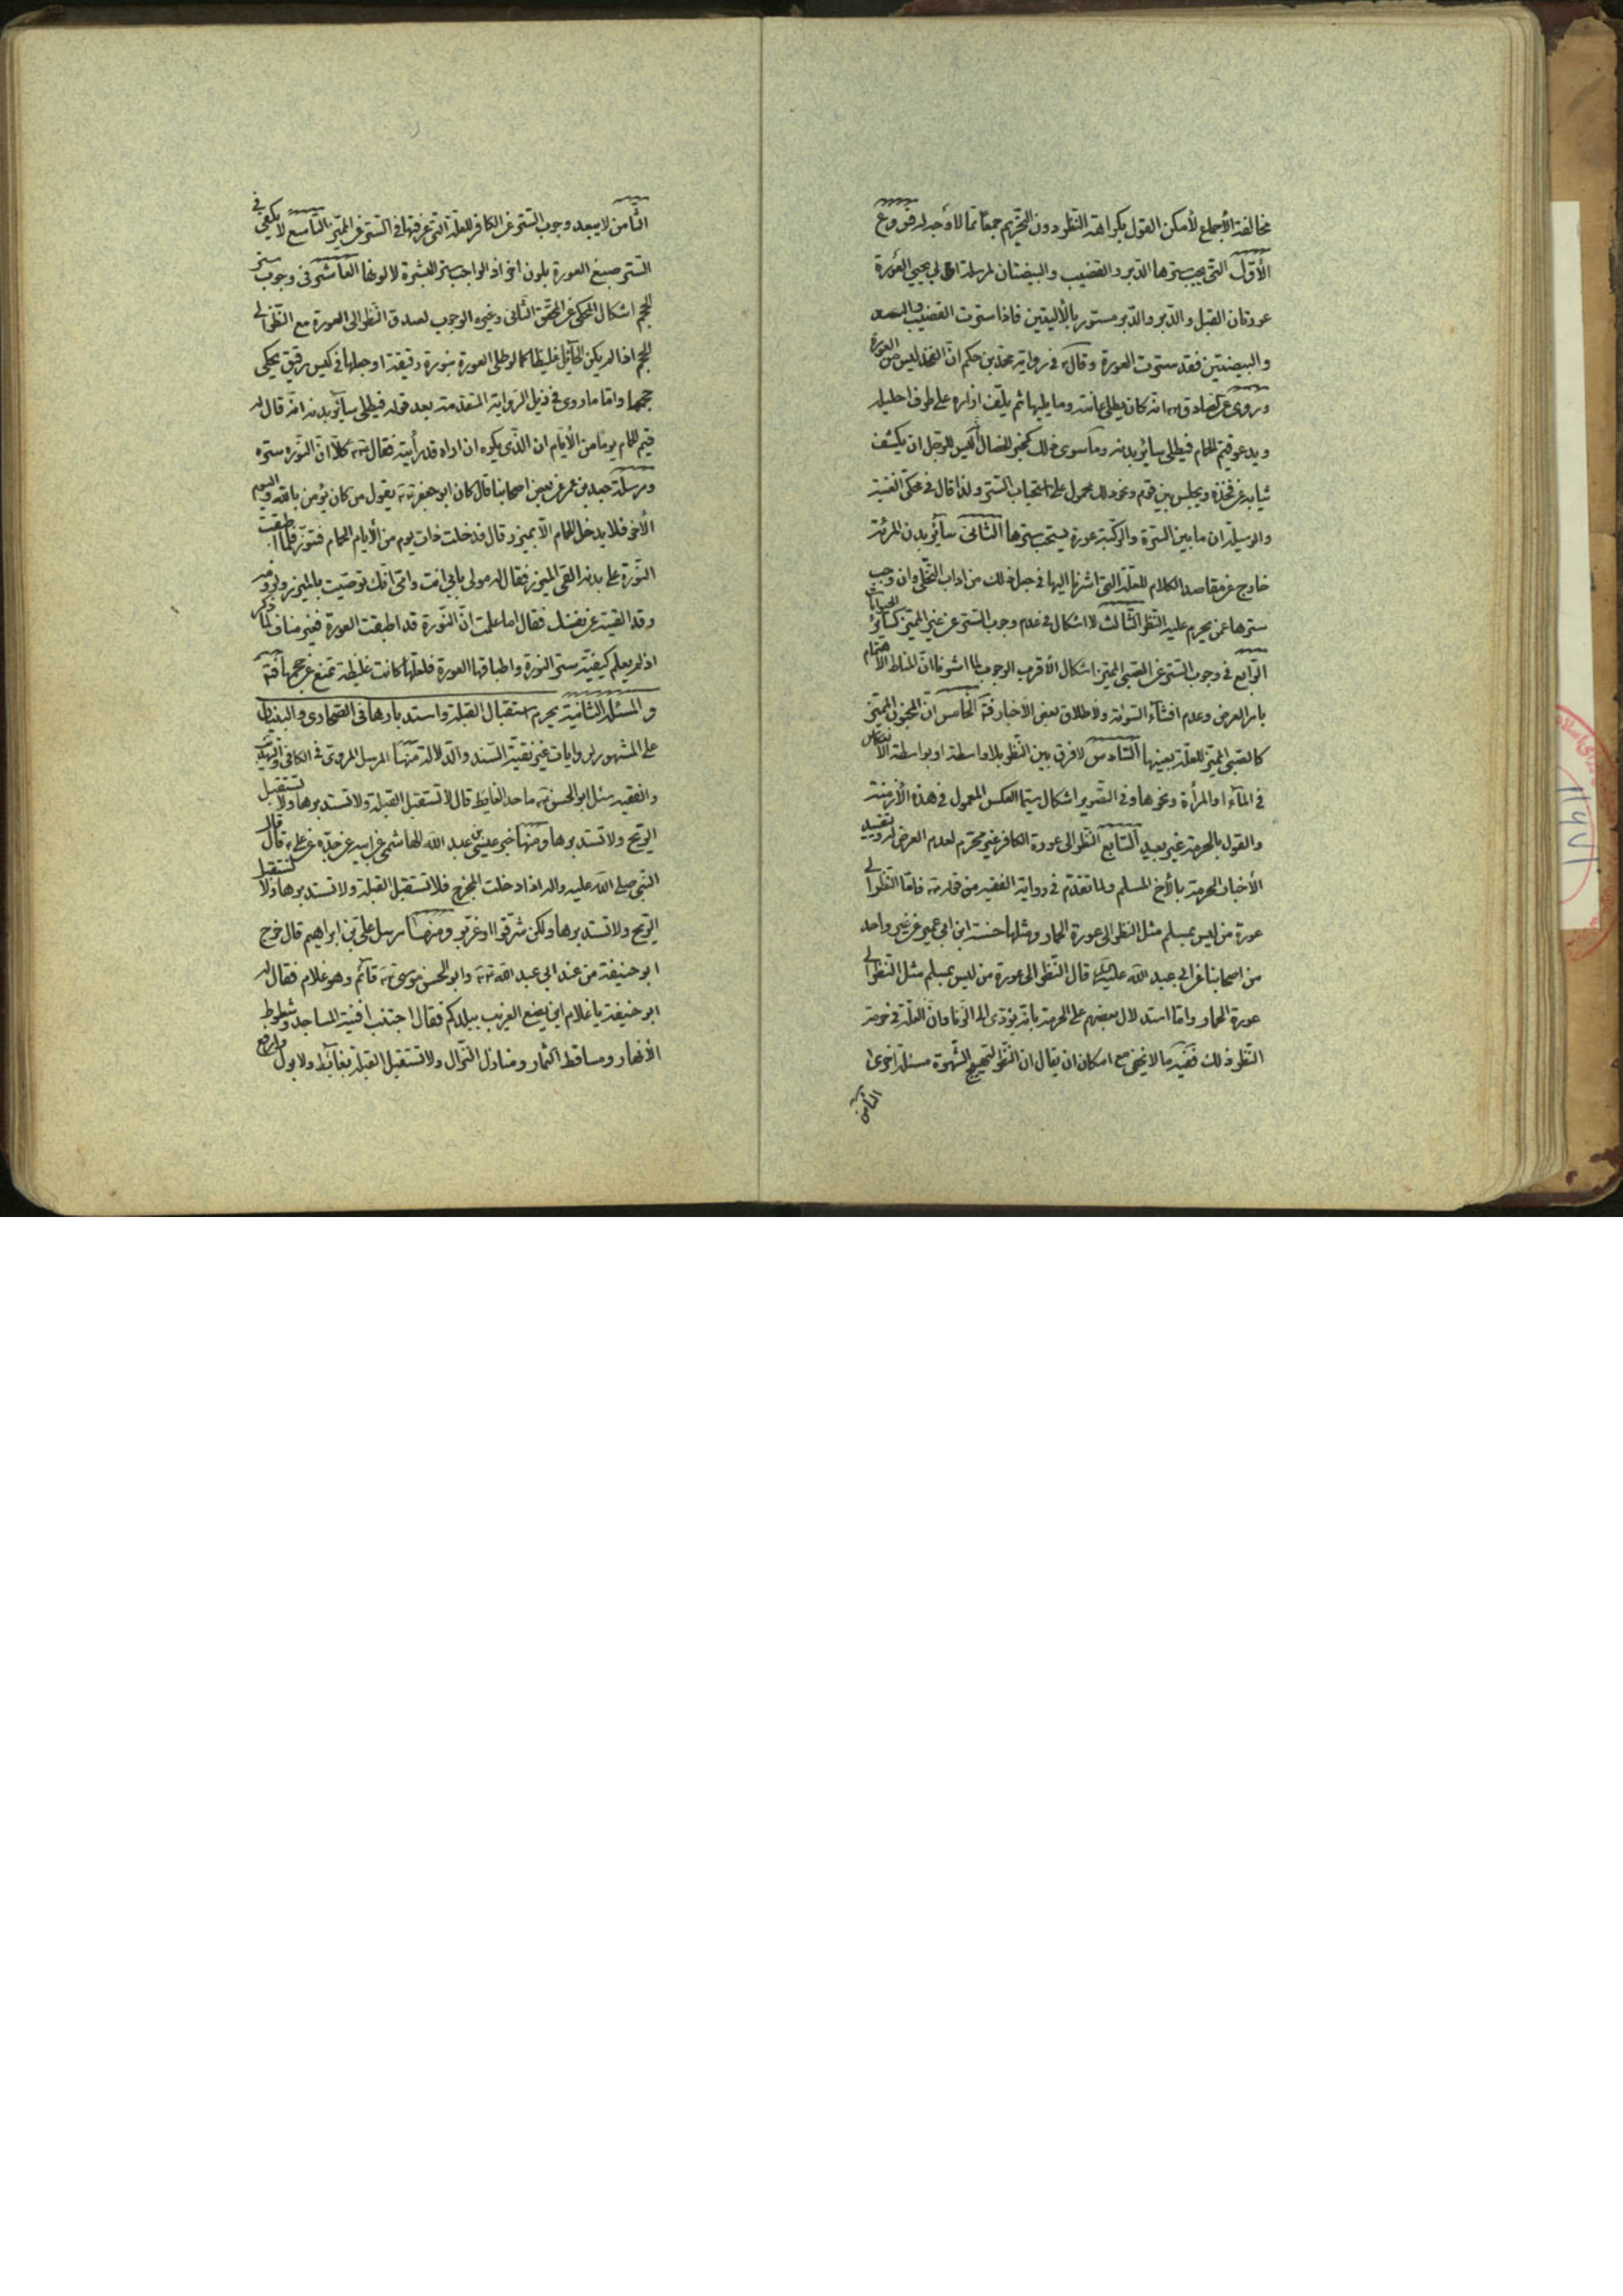 مخالفة الأجماع لأمكن القول بكراهة النظر دون التحريم جمعًا ممّا لا وجه له فروع
الأوّل التي يجب سترها الدبر والقضيب والبيضتان لمرسلة ابي يحيى العورة
عورتان القبل والدبر والدبر مستور بالأليتين فاذا سترت القضيب
والبيضتين فقد سترت العورة وقال في رواية محمّد بن حكيم انّ الفخذ ليس من العورة
وروى عن الصادق انّه كان يطلى عانته وما يليها ثم يلفّ ازاره على طرف احليله
ويدعو قيّم الحمام فيطلى سائر بدنه وما سوى ذلك كخبر الخصال ليس للرجل ان يكشف
ثيابه عن فخذه ويجلس بين قوم ونحو ذلك محمول على استحباب الستر ولذا قال في محكى الغنية
والوسيلة ان ما بين السرّة والركبة عورة يستحب سترها الثانى سائر بدن المرئة
خارج عن مقاصد الكلام للعلّة التي اشرنا اليها في جعل ذلك من اداب التخلّى وان وجب
سترها عمن يحرم عليه النظر الثالث لا اشكال في عدم وجوب الستر عن غير المميّز كسائر الحيوانات
الرّابع في وجوب الستر عن الصّبى المميّز اشكال الأقرب الوجوب لما اشرنا انّ المناط الاهتمام
بامر العرض وعدم افشاء السوئة ولاطلاق بعض الأخبار فتۀ الخامس انّ المجنون المميّز
كالصّبى المميّز للعلّة بعينها السّادس لا فرق بين النّظر بلا واسطة او بواسطة الانعكاس
في الماء او المرأة ونحوها وفي التّصوير اشكال سيّما العكس المعمول في هذه الأزمنة
والقول بالحرمة غير بعيد السّابع النّظر الى عورة الكافر غير محرّم لعدم العرض له وتقييد
الأخبار المحرمة بالأخ المسلم ولما تقدّم في رواية الفقيه من قوله فامّا النّظر الى
عورة من ليس بمسلم مثل النظر الى عورة الحمار ومثلها حسنة ابن ابى عمير عن غير واحد
من اصحابنا عن ابى عبد الله عليه السلام قال النّظر الى عورة من ليس بمسلم مثل النّظر الى
عورة الحمار وامّا استدلال بعضهم على الحرمة بانّه يؤدّى الى الزّنا وانّ العلّة في حرمة
النّظر ذلك ففيه ما لا يخفى مع امكان ان يقال ان النّظر لتهييج الشّهوة مسئلة اخرى
الثامن
الثّامن لا يبعد وجوب الستر عن الكافر للعلّة التي عرفتها في الستر عن المميّز التّاسع لا يكفى في
الستر صبغ العورة بلون اخر اذ الواجب ستر البشرة لا لونها العاشر في وجوب ستر
الحجم اشكال المحكى عن المحقّق الثّانى وغيره الوجوب لصدق النّظر الى العورة مع النّظر الى
الحجم اذا لم يكن الحآئل غليظًا كما لو طلى العورة بنورة رقيقة او جعلها في كيس رقيق يحكى
حجمها وامّا ما روى في ذيل الرّواية المتقدمة بعد قوله فيطلى سآئر بدنه انّه قال له
قيّم الحمام يومًا من الأيّام ان الذّى يكره ان اراه قد رأيته فقال كلّا انّ النّورة سترة
ومرسلة محمد بن عمر عن بعض اصحابنا قال كان ابو جعفر يقول من كان يؤمن بالله واليوم
الأخر فلا يدخل الحمام الّا بميزر قال فدخلت ذات يوم من الأيام الحمام فتنوّر فلمّا اطبقت
النّورة على بدنه القى الميزر فقال له مولى بابى انت وامّى انّك توصّيت بالميزر ولزومه
وقد القيته عن نفسك فقال اما علمت انّ النّورة قد اطبقت العورة فغير مناف لما ذكر
اذ لم يعلم كيفيّة ستر النورة واطباقها العورة فلعلّها كانت غليظة تمنع عن حجمها فتۀ
والمسئلة الثّانية يحرم استقبال القبلة واستدبارها في الصّحارى والبنيان
على المشهور لروايات غير نقيّة السّند والدّلالة منها المرسل المروىّ في الكافى والتهذيب
والفقيه سئل ابو الحسن ما حد الغائط قال لا تستقبل القبلة ولا تستدبرها ولا تستقبل
الرّيح ولا تستدبرها ومنها خبر عيسى بن عبد الله الهاشمى عن ابيه عن جدّه عن على قال قال
النّبى صلى الله عليه واله اذا دخلت المخرج فلا تستقبل القبلة ولا تستدبرها ولا تستقبل
الرّيح ولا تستدبرها ولكن شرّقوا او غرّبوا ومنها مرسل علىّ بن ابراهيم قال خرج
ابو حنيفة من عند ابى عبد الله وابو الحسن موسى قائم وهو غلام فقال له
ابو حنيفة يا غلام اين يضع الغريب ببلدكم فقال اجتنب افنية المساجد وشطوط
الأنهار ومساقط الثمار ومنازل النّزّال ولا تستقبل القبلة بغآئط ولا بول وارفع